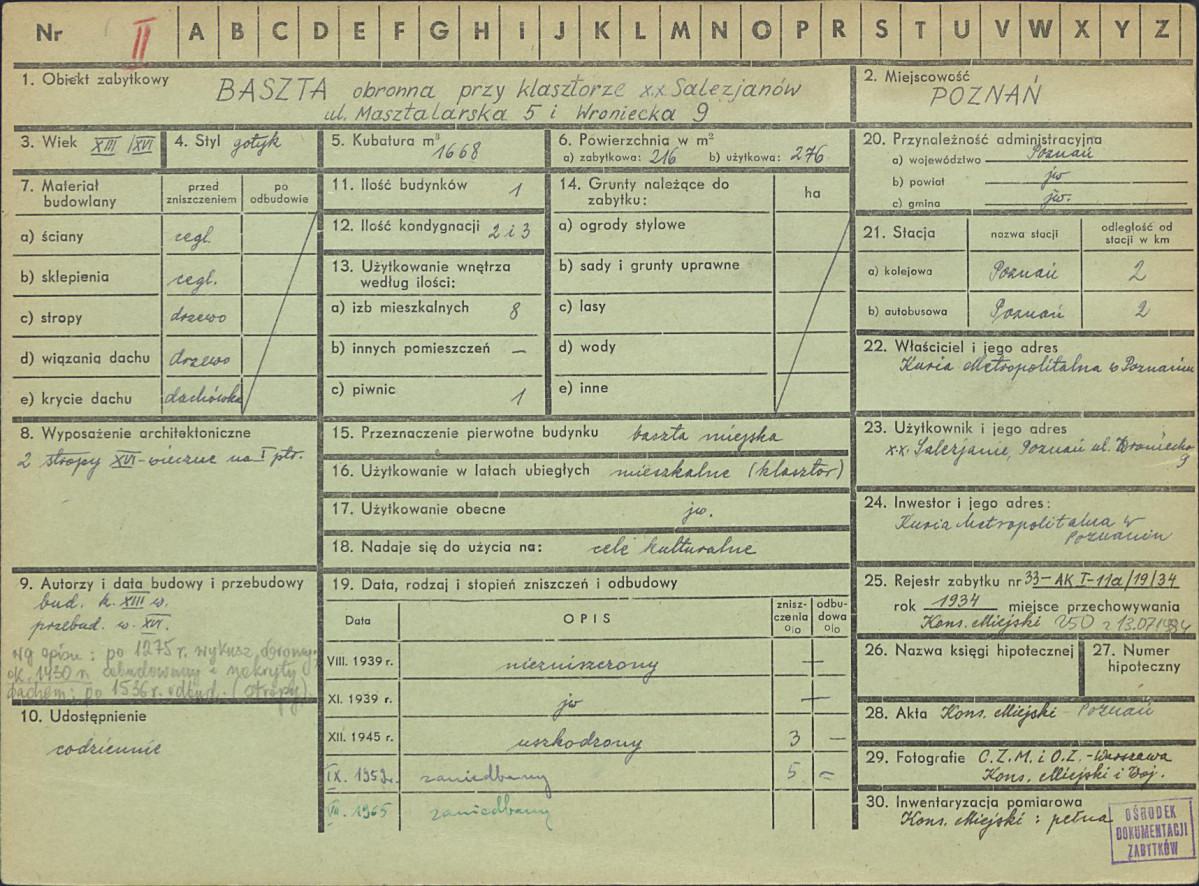 Nr II A B C D E F G H I J K L M N O P R S T U V W X Y Z
1. Obiekt zabytkowy BASZTA obronna przy klasztorze x.x. Salezjanów
ul. Masztalarska 5 i Wroniecka 9
2. Miejscowość
POZNAŃ
3. Wiek XIII/XVI
4. Styl gotyk
5. Kubatura m³
1668
6. Powierzchnia w m²
a) zabytkowa: 216 b) użytkowa: 276
7. Materiał budowlany
przed zniszczeniem
po odbudowie
a) ściany cegl.
b) sklepienia cegl.
c) stropy drzewo
d) wiązania dachu drzewo
e) krycie dachu dachówka
8. Wyposażenie architektoniczne
2 stropy XVI-wieczne na I ptr.
9. Autorzy i data budowy i przebudowy
bud. k. XIII w.
przebud. w. XVI.
wg opisu: po 1275 r. wykusz obronny,
ok. 1430 r. zabudowany i nakryty
dachem; po 1536 r. odbud. (stropy).
10. Udostępnienie
codziennie
11. Ilość budynków 1
12. Ilość kondygnacji 2 i 3
13. Użytkowanie wnętrza
według ilości:
a) izb mieszkalnych 8
b) innych pomieszczeń –
c) piwnic 1
14. Grunty należące do
zabytku:
ha
a) ogrody stylowe
b) sady i grunty uprawne
c) lasy
d) wody
e) inne
15. Przeznaczenie pierwotne budynku baszta miejska
16. Użytkowanie w latach ubiegłych mieszkalne (klasztor)
17. Użytkowanie obecne jw.
18. Nadaje się do użycia na: cele kulturalne
19. Data, rodzaj i stopień zniszczeń i odbudowy
Data
OPIS
znisz-
czenia
o/o
odbu-
dowa
o/o
VIII. 1939 r. niezniszczony –
XI. 1939 r. jw –
XII. 1945 r. uszkodzony 3 –
IX. 1959 r. zaniedbany 5 =
VII. 1965 zaniedbany
20. Przynależność administracyjna
a) województwo Poznań
b) powiat jw
c) gmina jw.
21. Stacja
nazwa stacji
odległość od
stacji w km
a) kolejowa Poznań 2
b) autobusowa Poznań 2
22. Właściciel i jego adres
Kuria Metropolitalna w Poznaniu
23. Użytkownik i jego adres
x.x. Salezjanie, Poznań ul. Wroniecka
9
24. Inwestor i jego adres:
Kuria Metropolitalna w
Poznaniu
25. Rejestr zabytku nr 33-AK I-11a/19/34
rok 1934 miejsce przechowywania
Kons. Miejski 250 z 13.07.1984
26. Nazwa księgi hipotecznej
27. Numer
hipoteczny
28. Akta Kons. Miejski – Poznań
29. Fotografie C.Z.M. i O.Z. - Warszawa
Kons. Miejski i Woj.
30. Inwentaryzacja pomiarowa
Kons. Miejski: pełna
OŚRODEK
DOKUMENTACJI
ZABYTKÓW